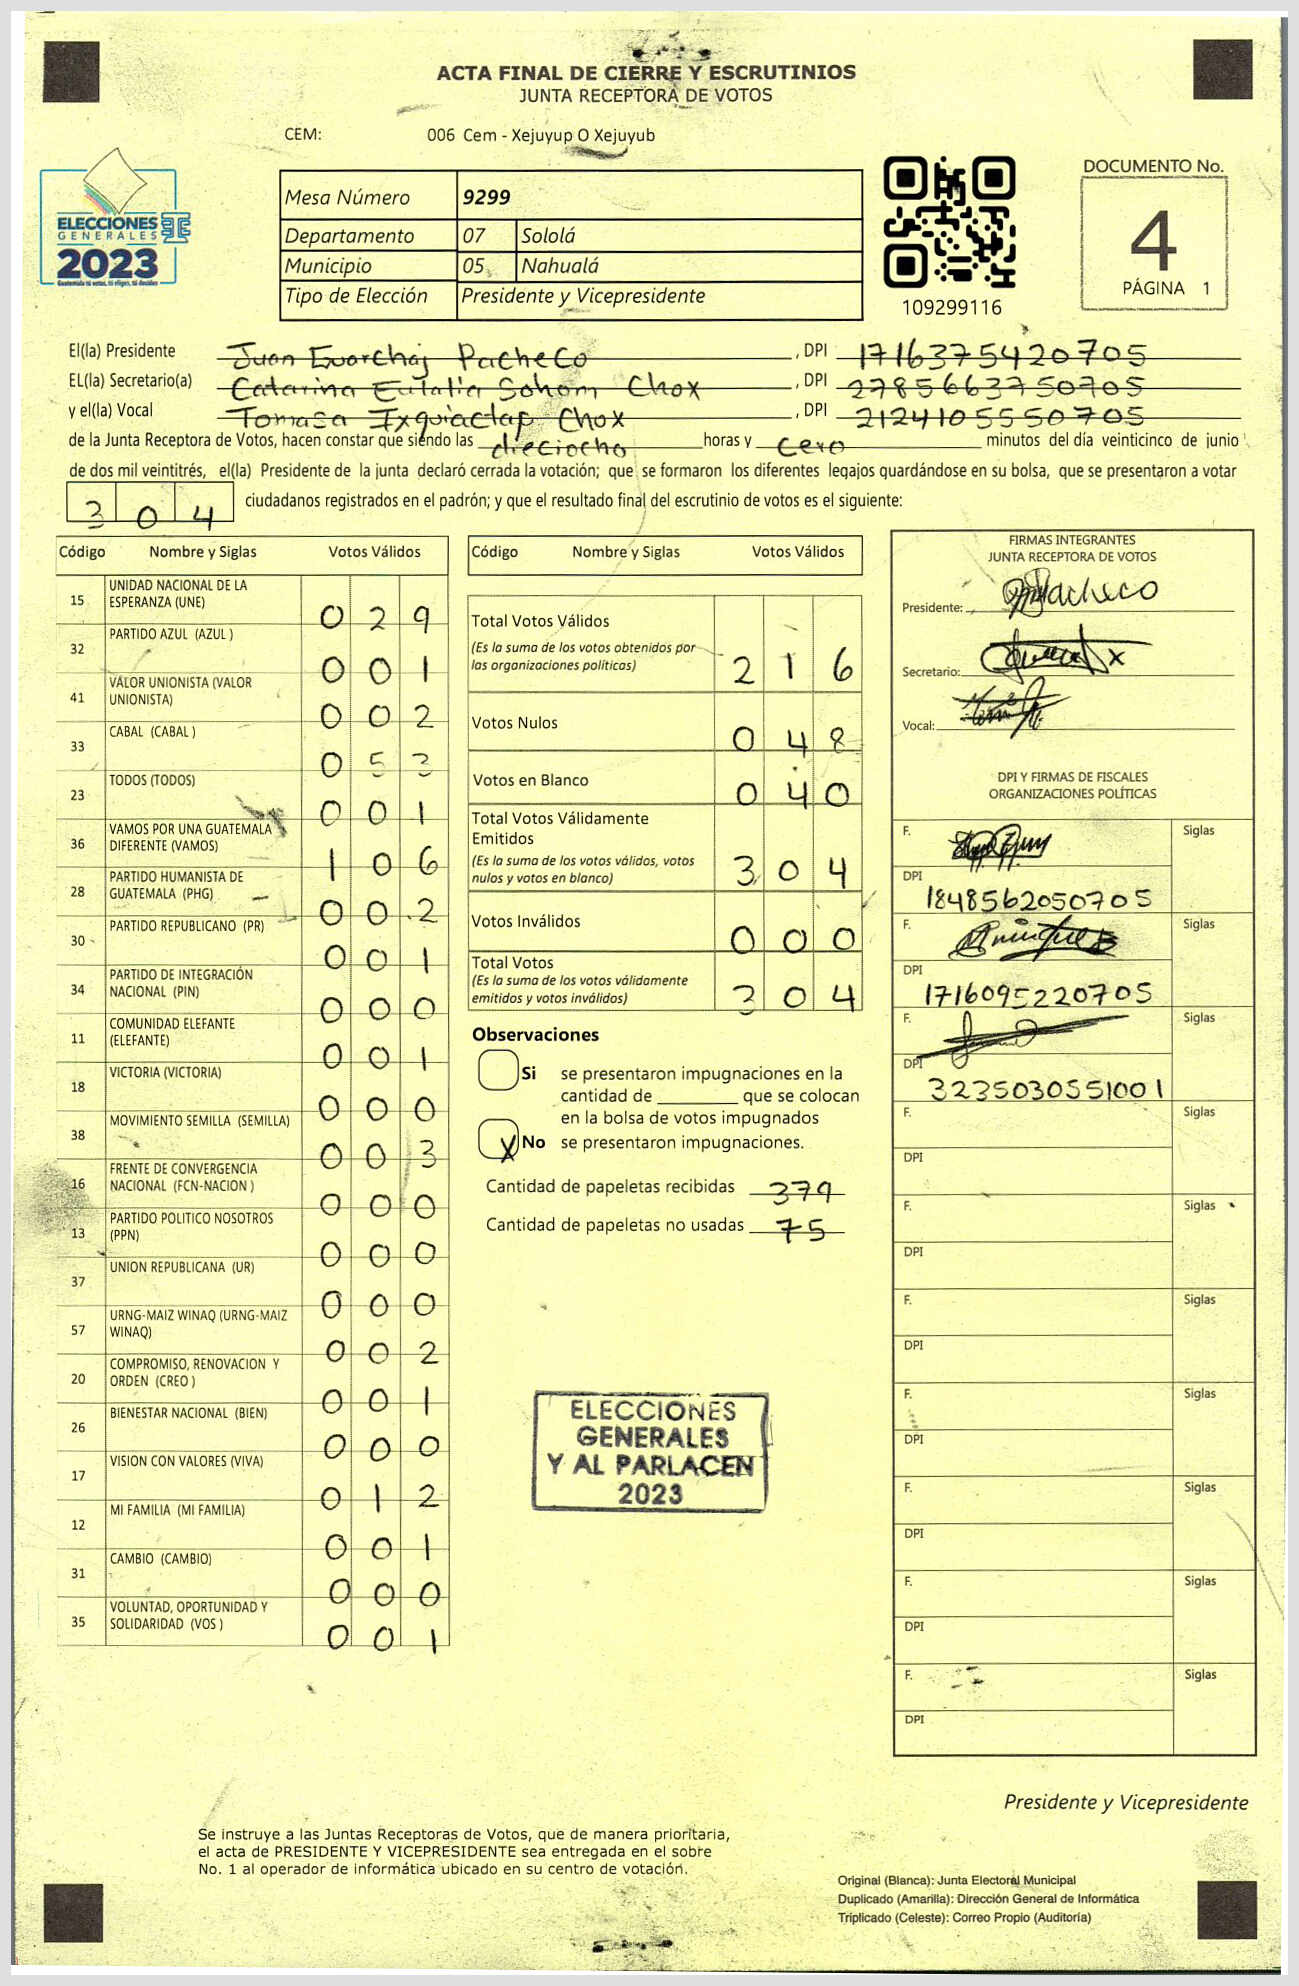 ACTA FINAL DE CIERRE Y ESCRUTINIOS
JUNTA RECEPTORA DE VOTOS
CEM: 006 Cem - Xejuyup O Xejuyub
ELECCIONES
GENERALES
2023
Guatemala tú votas, tú eliges, tú decides
Mesa Número 9299
Departamento 07 Sololá
Municipio 05 Nahualá
Tipo de Elección Presidente y Vicepresidente
109299116
DOCUMENTO No.
4
PÁGINA 1
El(la) Presidente Juan Guarchaj Pacheco , DPI 1716375420705
EL(la) Secretario(a) Catarina Eulalia Sohom Chox , DPI 2785663750705
y el(la) Vocal Tomasa Ixquiactap Chox , DPI 2124105550705
de la Junta Receptora de Votos, hacen constar que siendo las dieciocho horas y cero minutos del día veinticinco de junio
de dos mil veintitrés, el(la) Presidente de la junta declaró cerrada la votación; que se formaron los diferentes legajos quardándose en su bolsa, que se presentaron a votar
304 ciudadanos registrados en el padrón; y que el resultado final del escrutinio de votos es el siguiente:
Código Nombre y Siglas Votos Válidos
15 UNIDAD NACIONAL DE LA
ESPERANZA (UNE) 029
32 PARTIDO AZUL (AZUL ) 001
41 VALOR UNIONISTA (VALOR
UNIONISTA) 002
33 CABAL (CABAL ) 053
23 TODOS (TODOS) 001
36 VAMOS POR UNA GUATEMALA
DIFERENTE (VAMOS) 106
28 PARTIDO HUMANISTA DE
GUATEMALA (PHG) 002
30 PARTIDO REPUBLICANO (PR) 001
34 PARTIDO DE INTEGRACIÓN
NACIONAL (PIN) 000
11 COMUNIDAD ELEFANTE
(ELEFANTE) 001
18 VICTORIA (VICTORIA) 000
38 MOVIMIENTO SEMILLA (SEMILLA) 003
16 FRENTE DE CONVERGENCIA
NACIONAL (FCN-NACION ) 000
13 PARTIDO POLITICO NOSOTROS
(PPN) 000
37 UNION REPUBLICANA (UR) 000
57 URNG-MAIZ WINAQ (URNG-MAIZ
WINAQ) 002
20 COMPROMISO, RENOVACION Y
ORDEN (CREO ) 001
26 BIENESTAR NACIONAL (BIEN) 000
17 VISION CON VALORES (VIVA) 012
12 MI FAMILIA (MI FAMILIA) 001
31 CAMBIO (CAMBIO) 000
35 VOLUNTAD, OPORTUNIDAD Y
SOLIDARIDAD (VOS ) 001
Código Nombre y Siglas Votos Válidos
Total Votos Válidos
(Es la suma de los votos obtenidos por
las organizaciones políticas) 216
Votos Nulos 048
Votos en Blanco 040
Total Votos Válidamente
Emitidos
(Es la suma de los votos válidos, votos
nulos y votos en blanco) 304
Votos Inválidos 000
Total Votos
(Es la suma de los votos válidamente
emitidos y votos inválidos) 304
Observaciones
Si se presentaron impugnaciones en la
cantidad de ________ que se colocan
en la bolsa de votos impugnados
X No se presentaron impugnaciones.
Cantidad de papeletas recibidas 379
Cantidad de papeletas no usadas 75
ELECCIONES
GENERALES
Y AL PARLACEN
2023
FIRMAS INTEGRANTES
JUNTA RECEPTORA DE VOTOS
Presidente: Pacheco
Secretario:
Vocal:
DPI Y FIRMAS DE FISCALES
ORGANIZACIONES POLÍTICAS
F. Siglas
DPI 1848562050705
F. Siglas
DPI 1716095220705
F. Siglas
DPI 3235030551001
F. Siglas
DPI
F. Siglas
DPI
F. Siglas
DPI
F. Siglas
DPI
F. Siglas
DPI
F. Siglas
DPI
F. Siglas
DPI
Presidente y Vicepresidente
Se instruye a las Juntas Receptoras de Votos, que de manera prioritaria,
el acta de PRESIDENTE Y VICEPRESIDENTE sea entregada en el sobre
No. 1 al operador de informática ubicado en su centro de votación.
Original (Blanca): Junta Electoral Municipal
Duplicado (Amarilla): Dirección General de Informática
Triplicado (Celeste): Correo Propio (Auditoría)